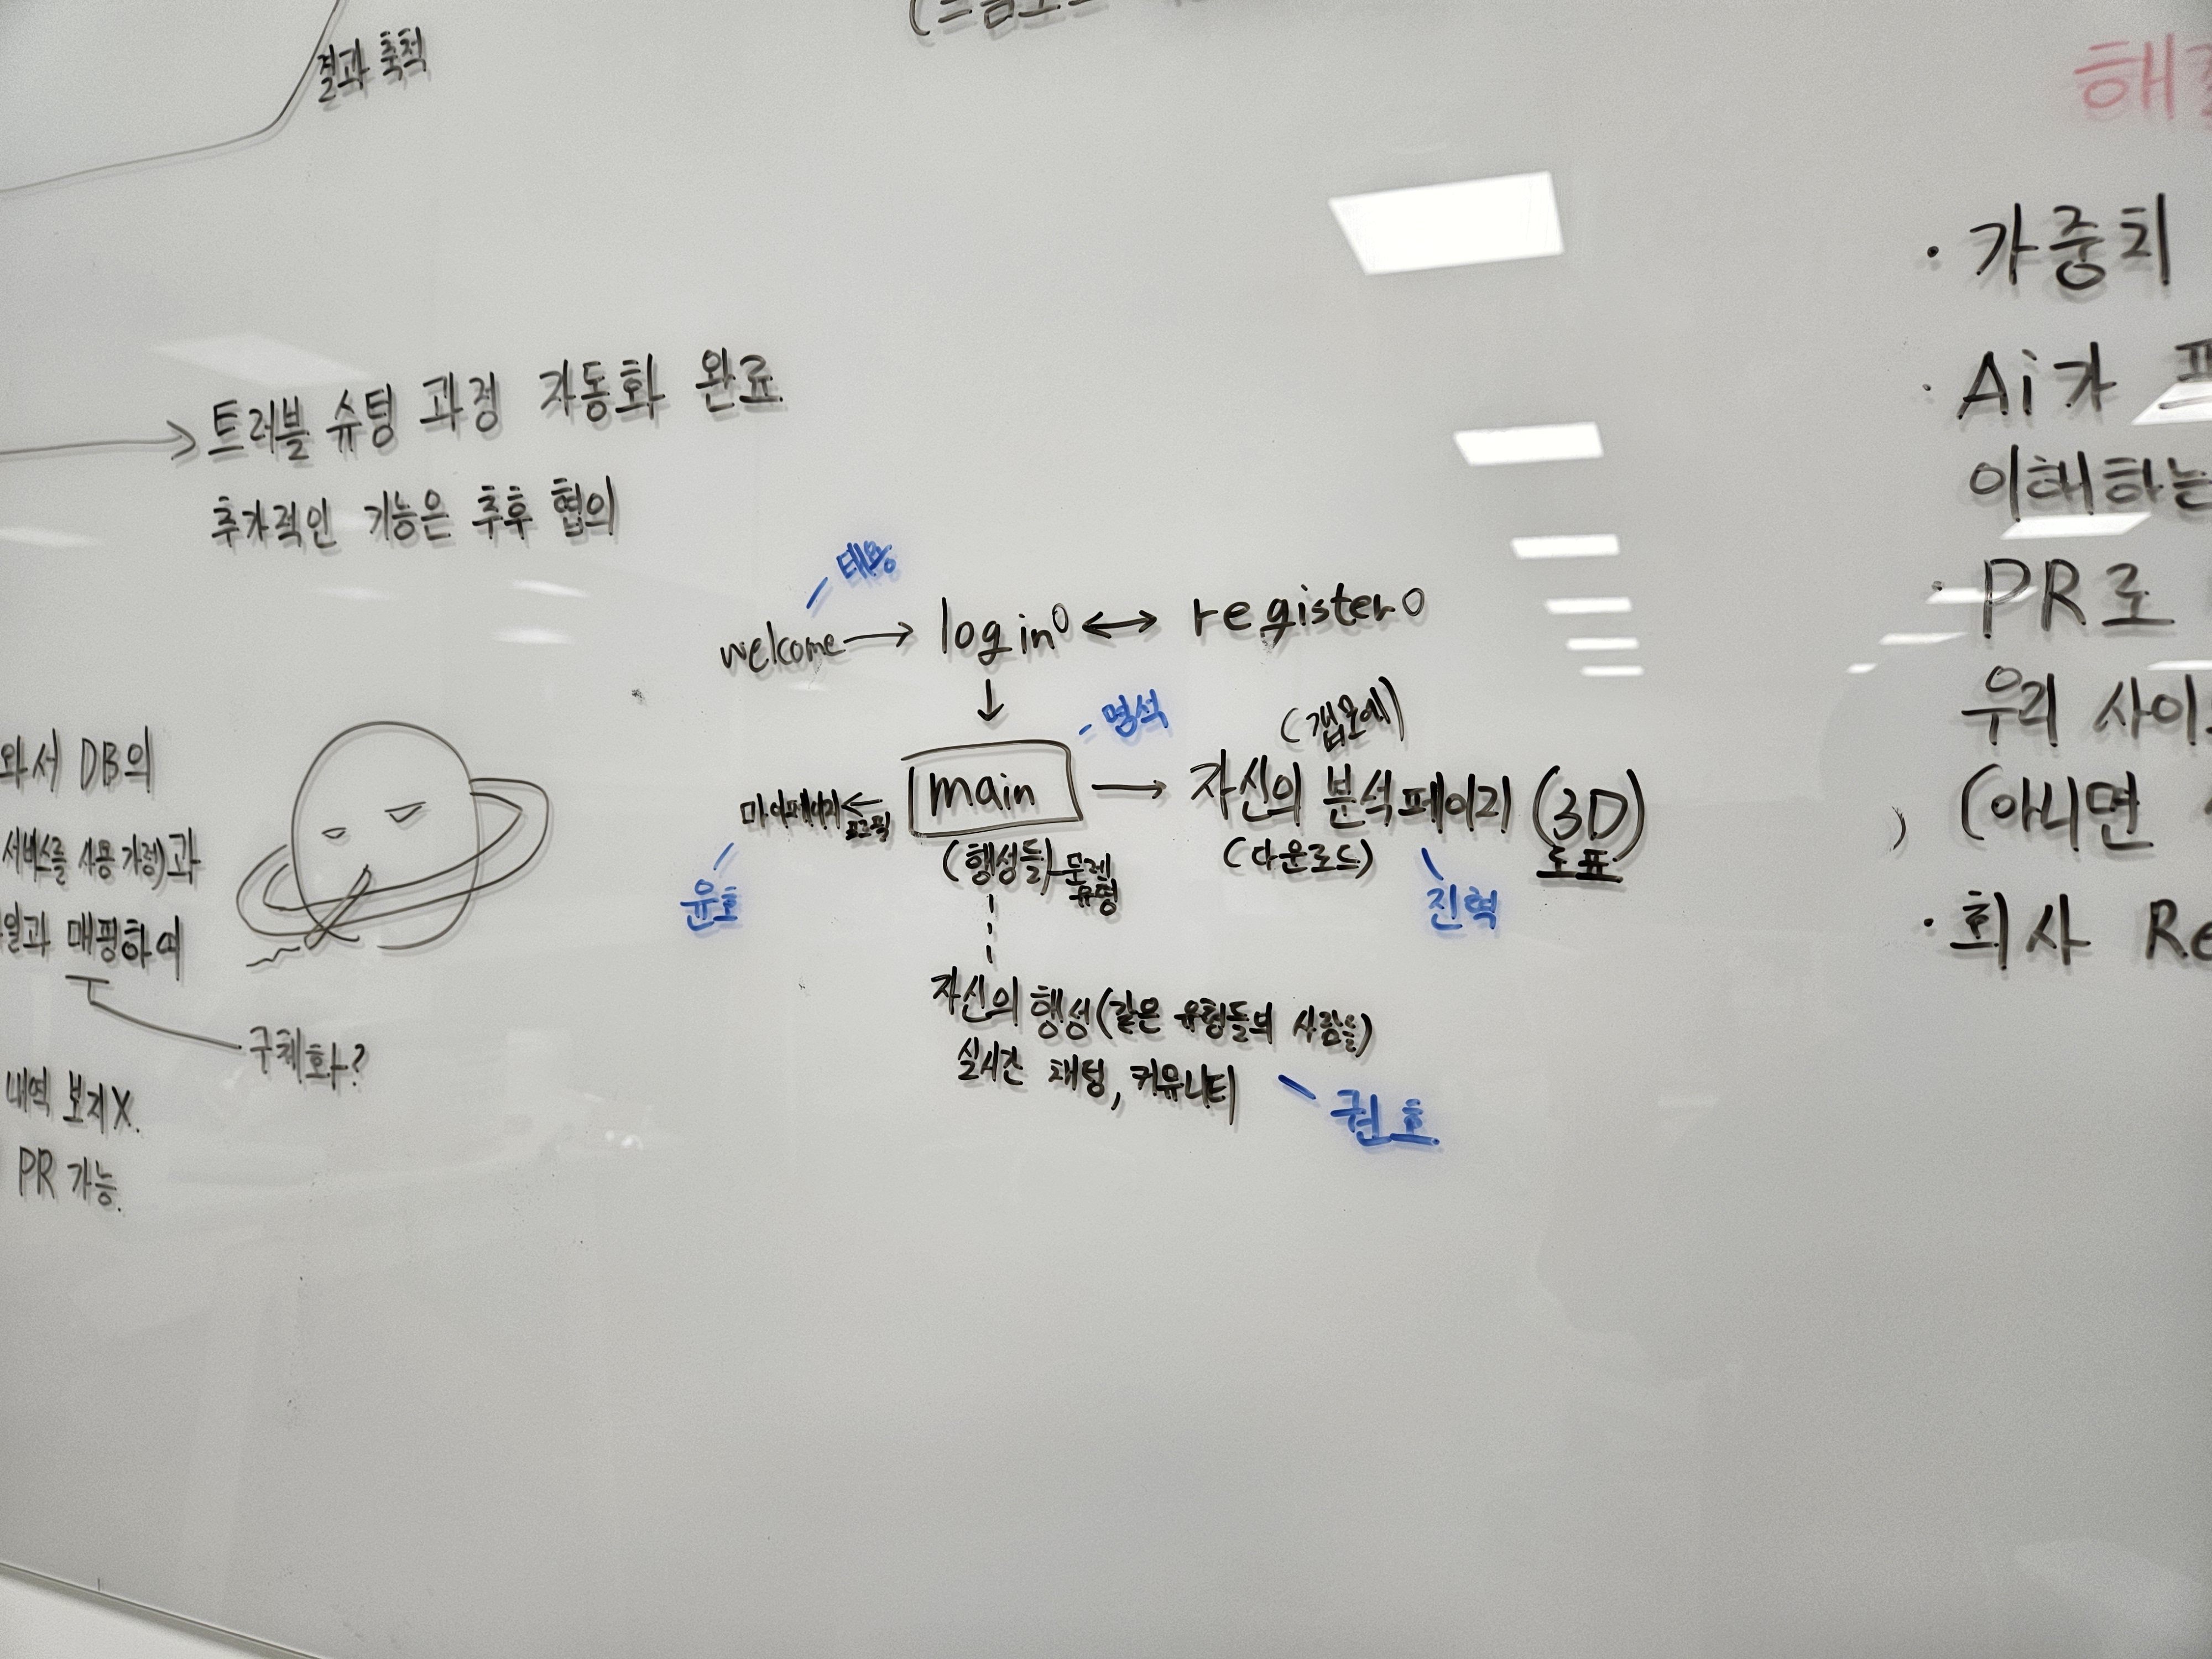 결과 축적
해
트러블 슈팅 과정 자동화 완료
추가적인 기능은 추후 협의
· 가중치
· Ai가
이해하는
· PR로
우리 사이
(아니면
· 회사 Re
welcome → login ↔ register
명석
main → 자신의 분석페이지 (3D)
(다운로드) 도표
마이페이지 ←
윤호
(행성들)
유형
진혁
자신의 행성(같은 유형들의 사람들)
실시간 채팅, 커뮤니티
권호
와서 DB의
서비스를 사용 가정)과
일과 매핑하여
구체화?
내역 보지X.
PR 가능.